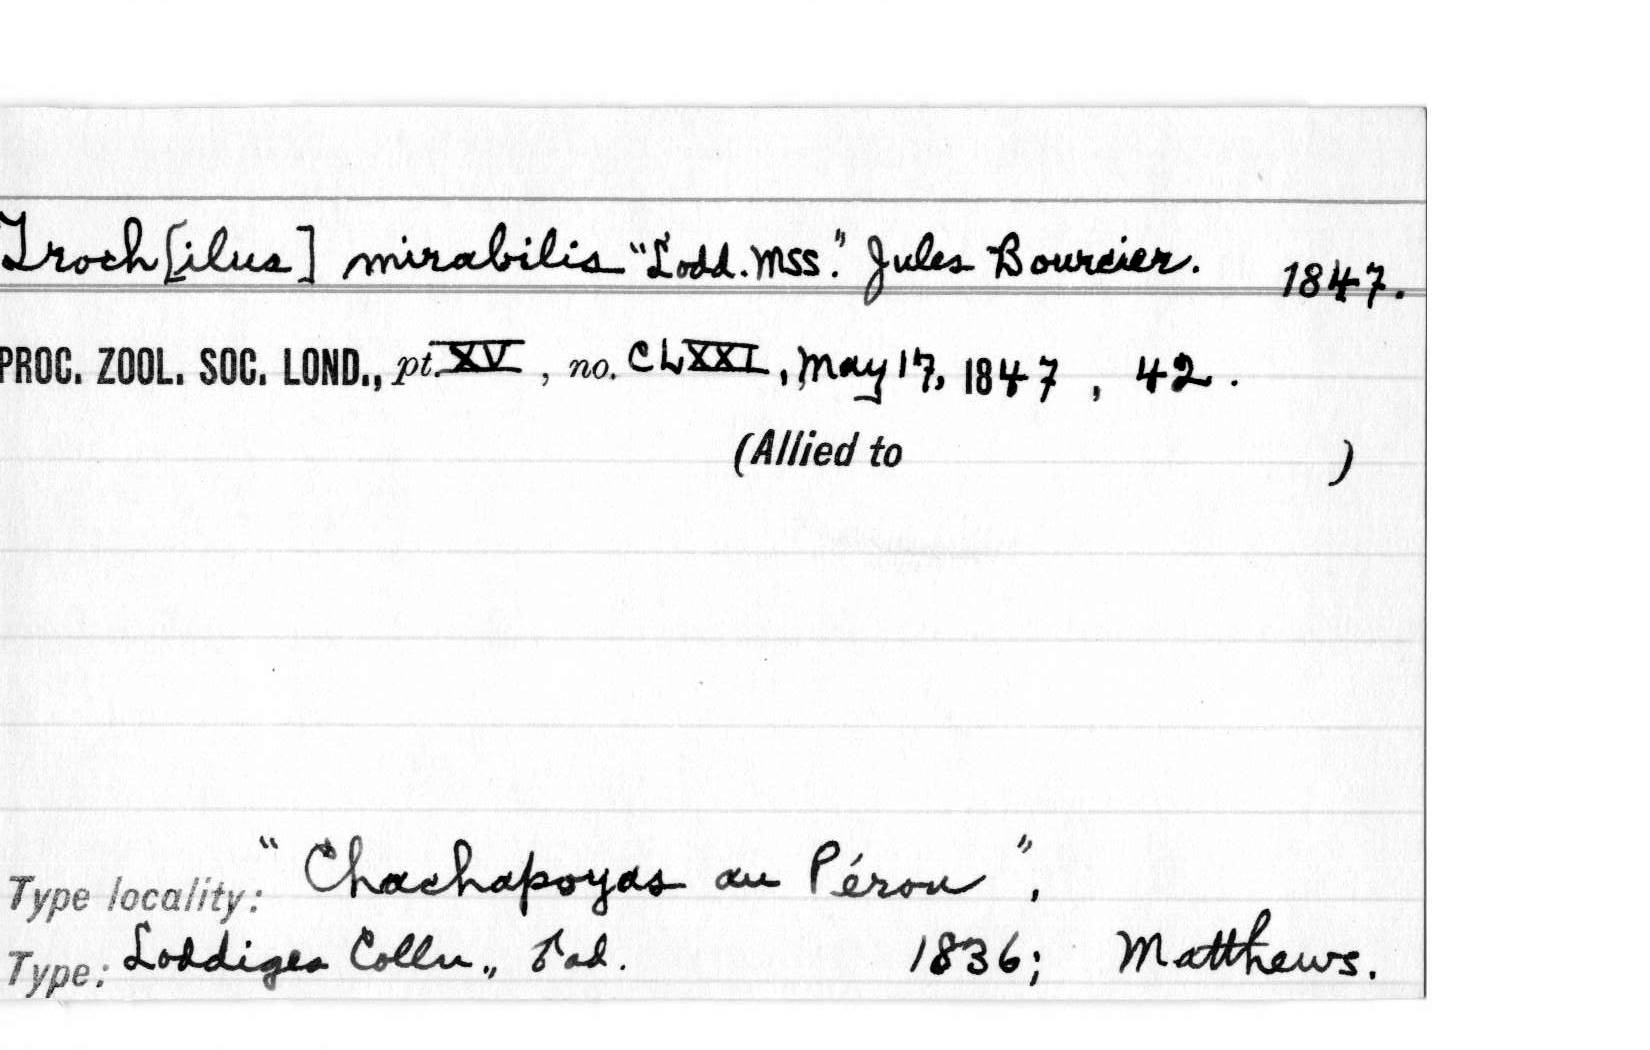 Troch[ilus] mirabilis "Lodd. Mss." Jules Bourcier. 1847.
PROC. ZOOL. SOC. LOND., pt. XV, no. CLXXI, May 17, 1847, 42.
(Allied to )
Type locality: "Chachapoyas au Pérou",
Type: Loddiges Colln., ♂ ad. 1836; Matthews.